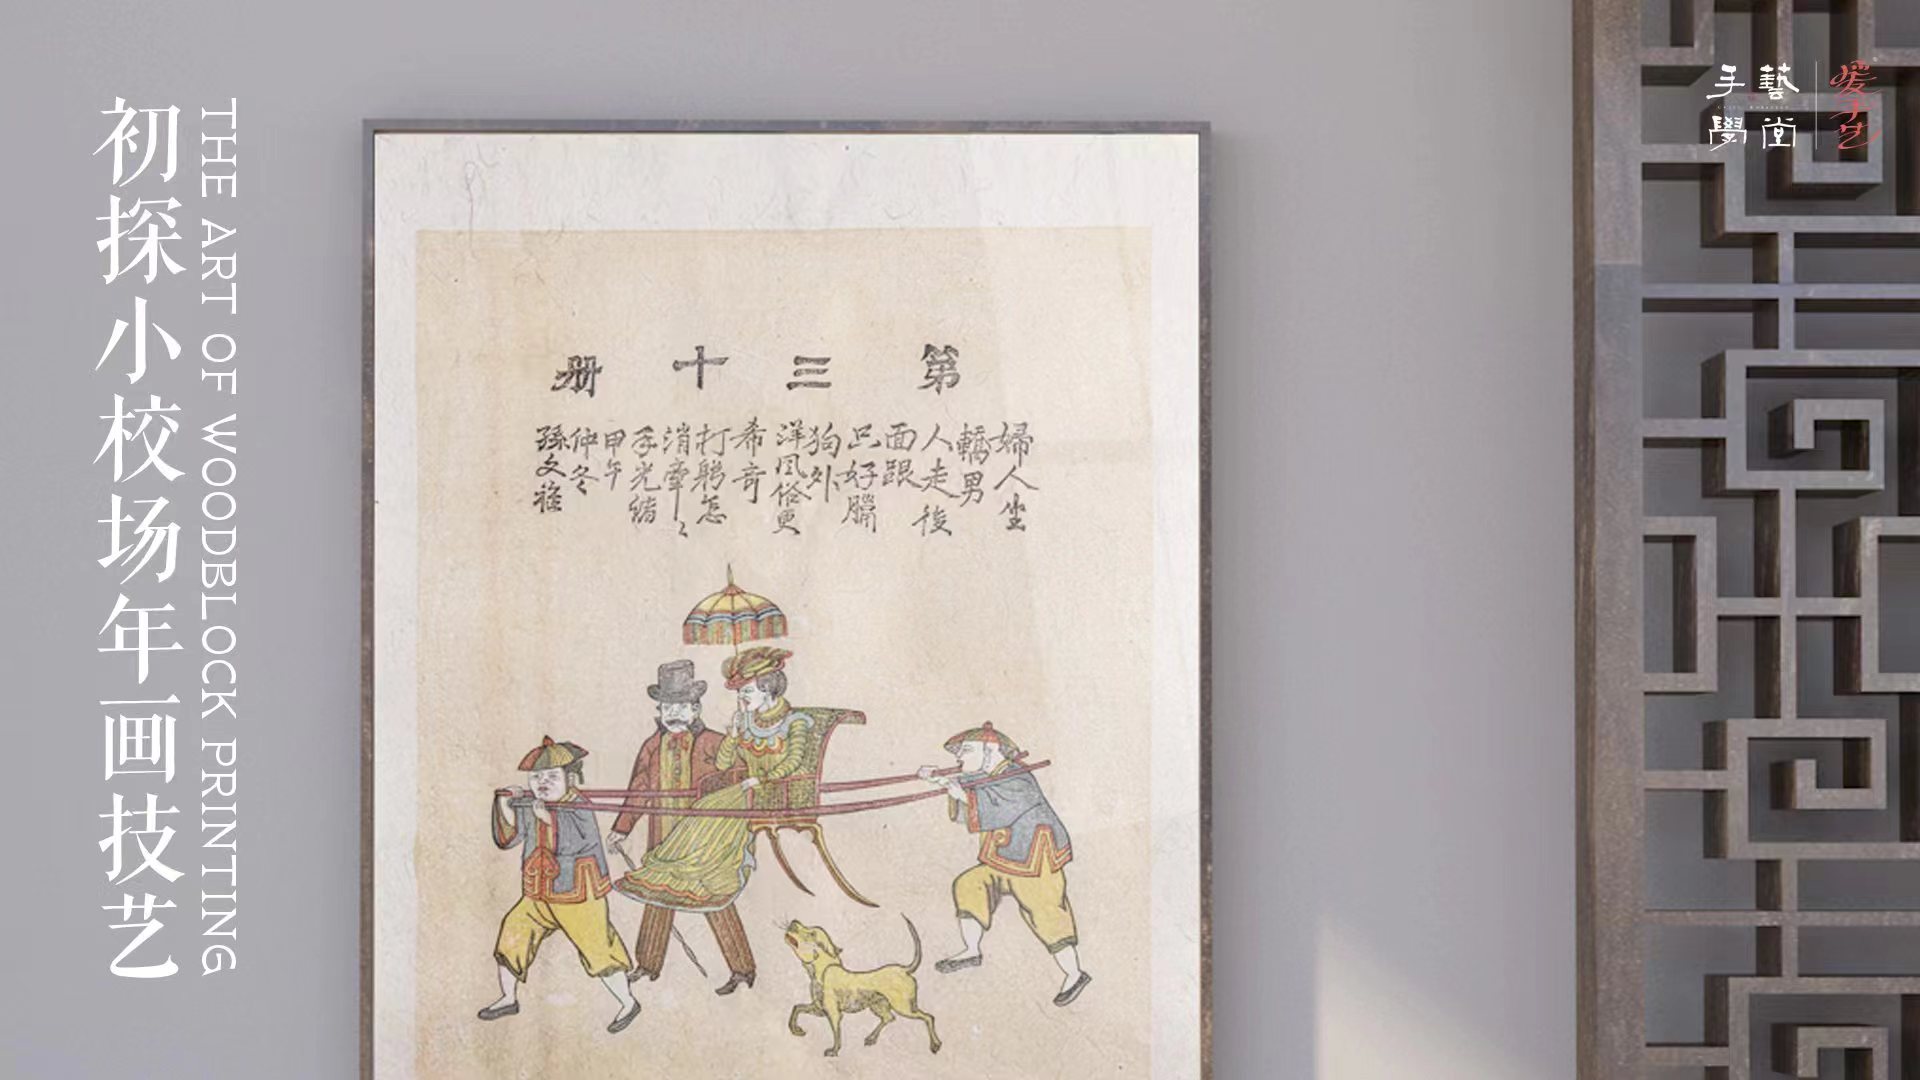 初探小校场年画技艺
THE ART OF WOODBLOCK PRINTING
手藝
學堂
爱手艺
第三十册
婦人坐
轎男
人走後
面跟
只好臈
狗外
洋风俗更
希奇
打躬怎
消牽〻
手光緒
甲午
仲冬
孫文